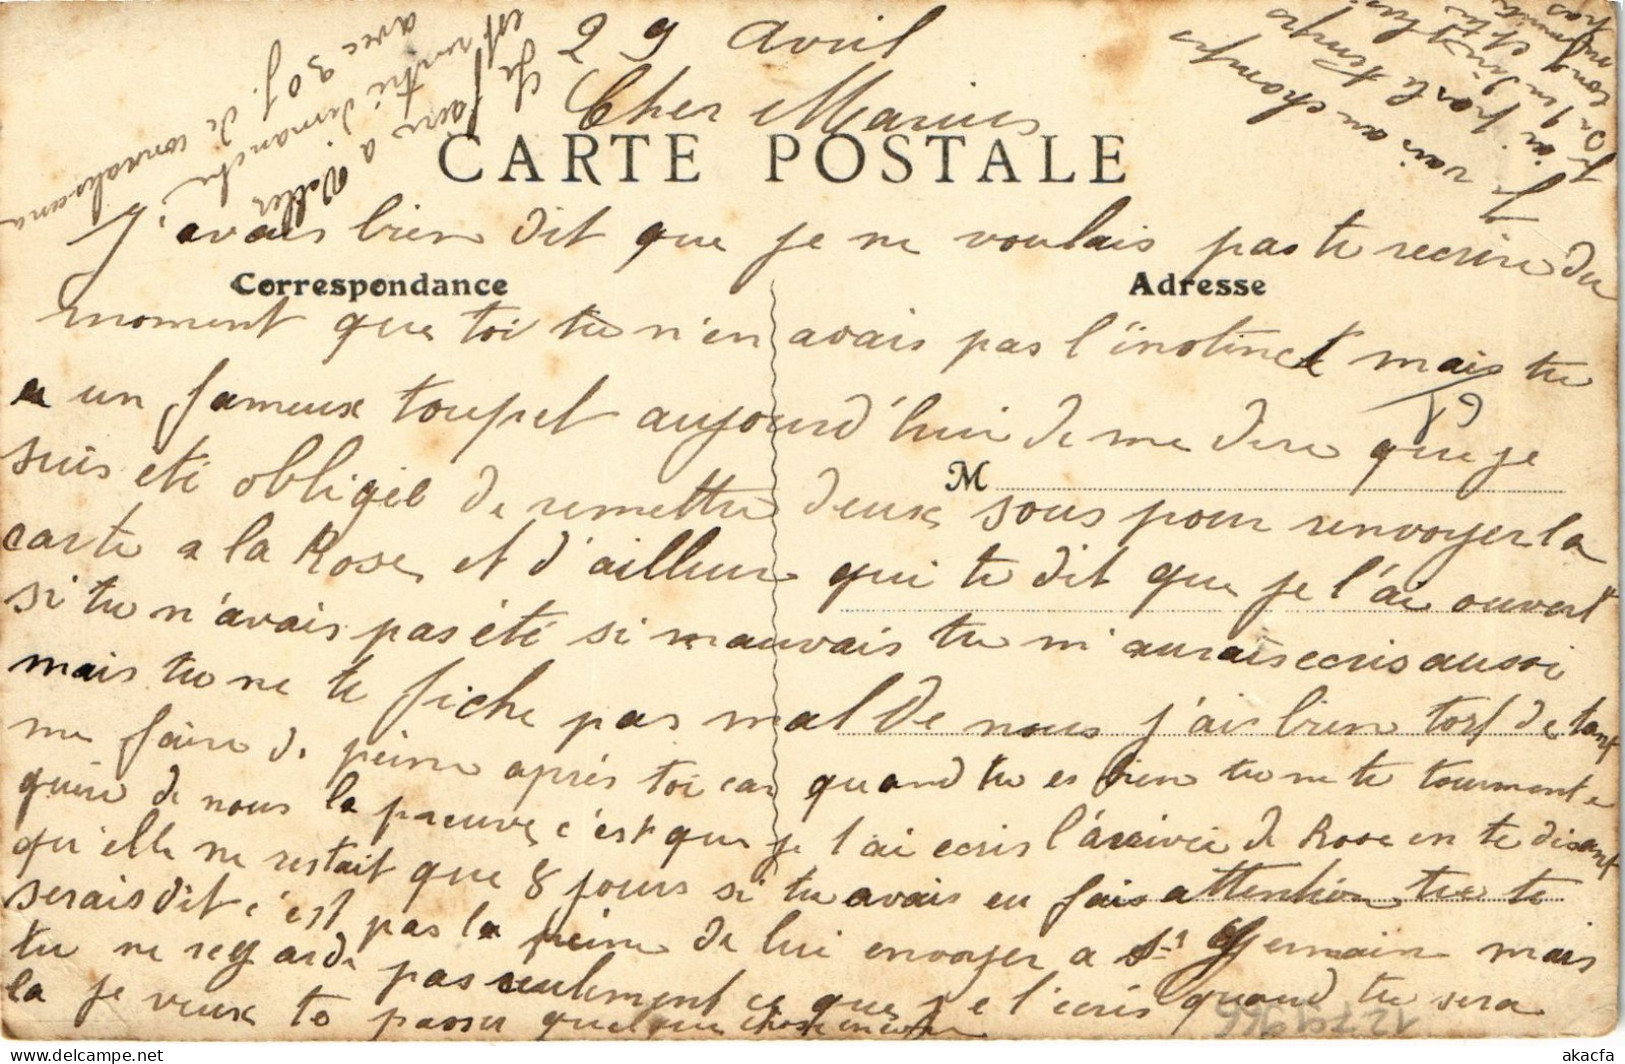 29 Avril
Cher Marius
CARTE POSTALE
J'avais bien dit que je ne voulais pas te recrire du
Correspondance
Adresse
moment que toi tu n'en avais pas l'instinct mais tu
a un fameux toupet aujourd'hui de me dire que je
19
M
suis eté obligée de remettre deux sous pour renvoyer la
carte a la Rose et d'ailleur qui te dit que je l'ai ouvert
si tu n'avais pas été si mauvais tu m'aurais ecris aussi
mais tu ne te fiche pas mal de nous j'ai bien tort de tant
me faire de peine après toi car quand tu es bien tu ne te tourmente
guère de nous la preuve c'est que je t'ai ecris l'arrivée de Rose en te disant
qu'elle ne restait que 8 jours si tu avais eu fais attention tu te
serais dit c'est pas la peine de lui envoyer a St Germain mais
tu ne regarde pas seulement ce que je t'ecris quand tu sera
la je veux te passer quelque chose encore
je vais au champs
j'ai pas le temps
de t'en dire plus
Je
est rentré dimanche
avec 30 j. de convalescence
12791966
akacfa